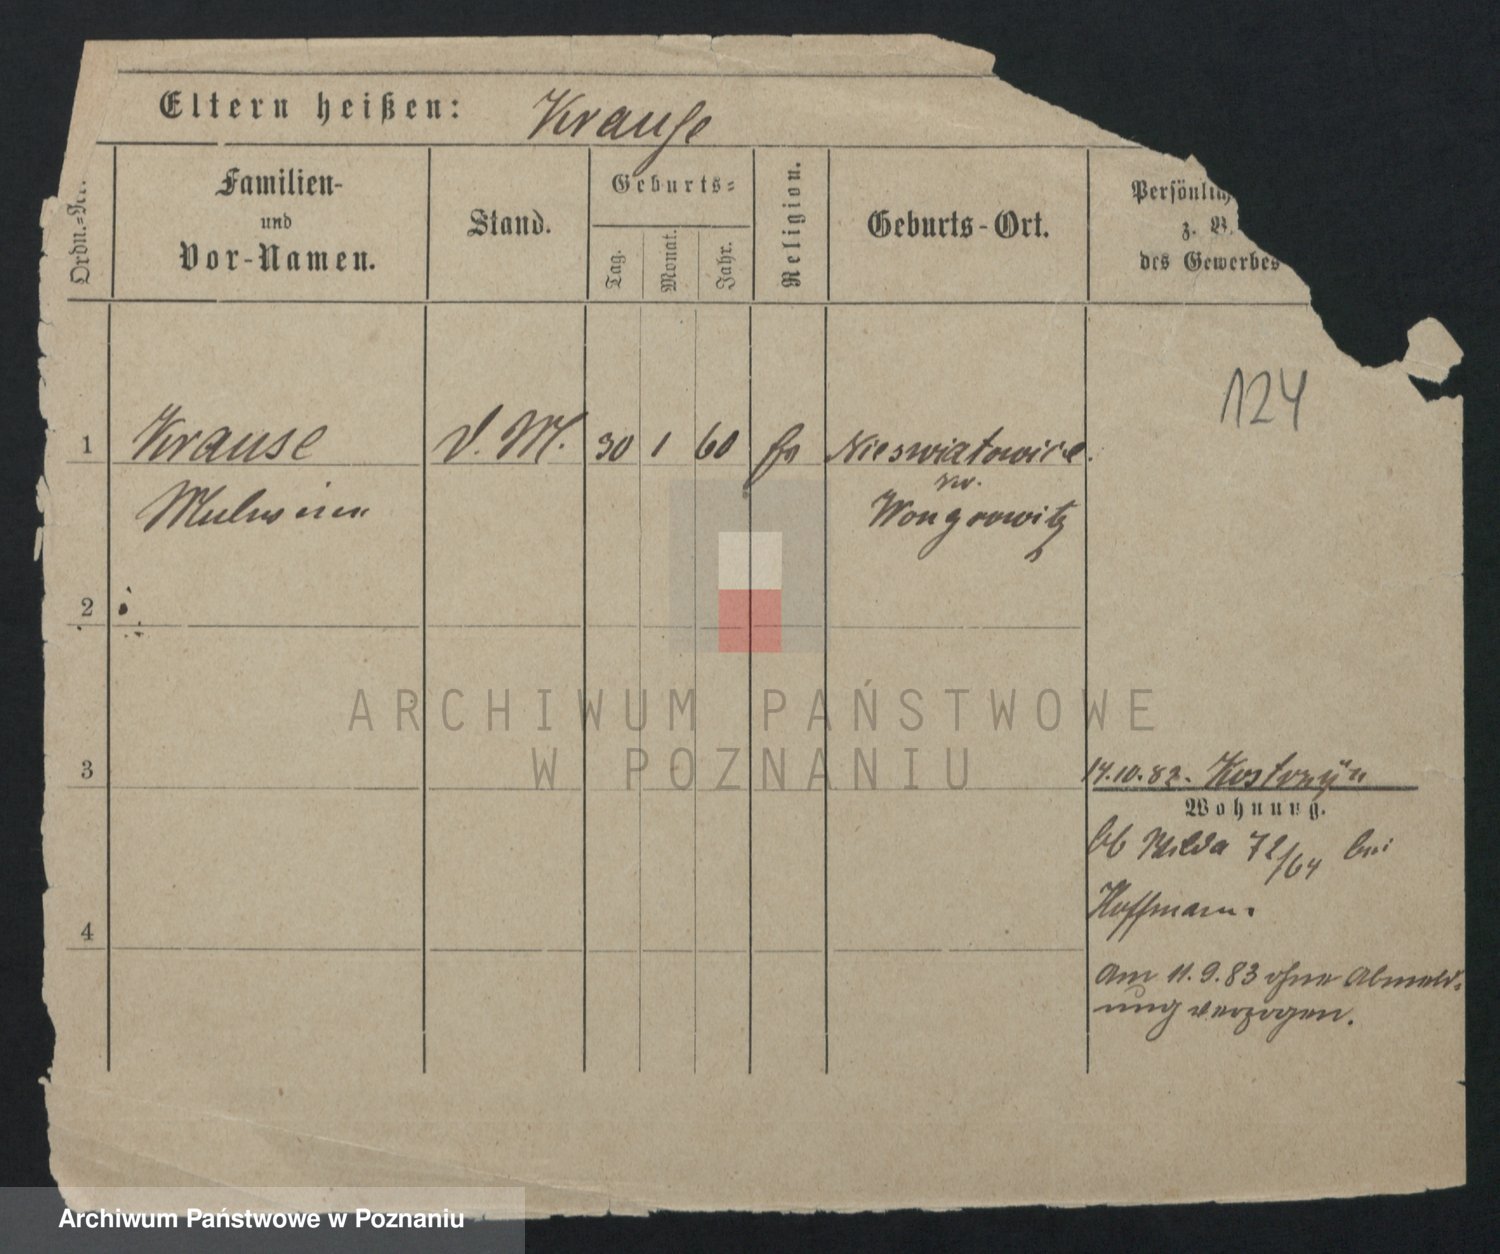 Eltern heißen: Krause
Ordn.-Nr.
Familien-
und
Vor-Namen.
Stand.
Geburts-
Tag.
Monat.
Jahr.
Religion.
Geburts-Ort.
Persönlich
z. B.
des Gewerbes
124
1 Krause d. M. 30 1 60 Nieswiatowice
Wongrowitz
2
3
14.10.82. Kostrzyn
Wohnung.
Wilda 72/64 bei
Hoffmann.
4
am 11.9.83 ohne Abmeld-
ung verzogen.
ARCHIWUM PAŃSTWOWE
W POZNANIU
Archiwum Państwowe w Poznaniu